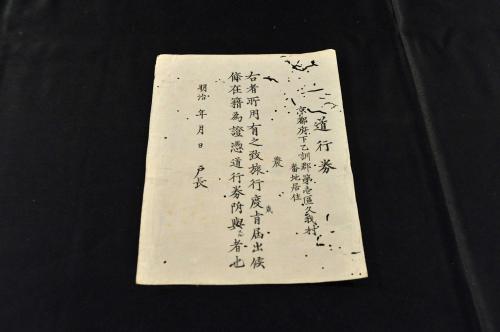 道行券
京都府下乙訓郡第壱區久我村
番地居住
農
歳
右者所用有之致旅行度旨届出候
條在籍為證憑道行券附與候者也
明治 年 月 日 戸長